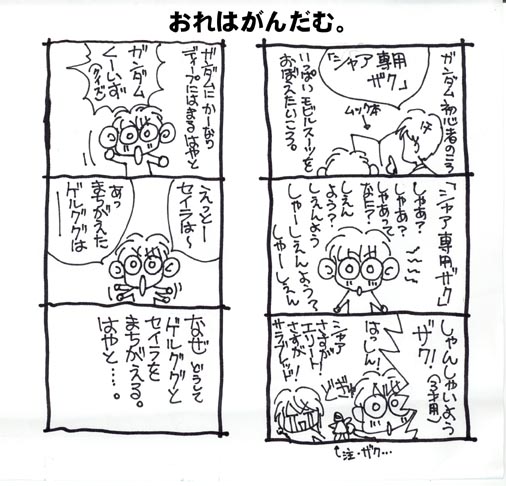 おれはがんだむ。
ガンダム初心者のころ
いっぱいモビルスーツを
おぼえたいころ。
「シャア専用
ザク」
ムック本
「シャア専用ザク」
しゃあ?
しゃあ?
しゃあって
なに?
しえん
よう?
しえんよう
しゃーしえんよう?
しゃーしえん
しゃんしゃいよう
ザク!
(3才用)
はっしん!
シャア
さすが
エリート!
さすが
サラブレッド!
↑注・ザク…
ガンダムにかーなり
ディープにはまるはやと
ガンダム
くーいず
(クイズ)
えっとー
セイラは~
あっ
まちがえた
ゲルググは
なぜ どうして
ゲルググと
セイラを
まちがえる。
はやと…。